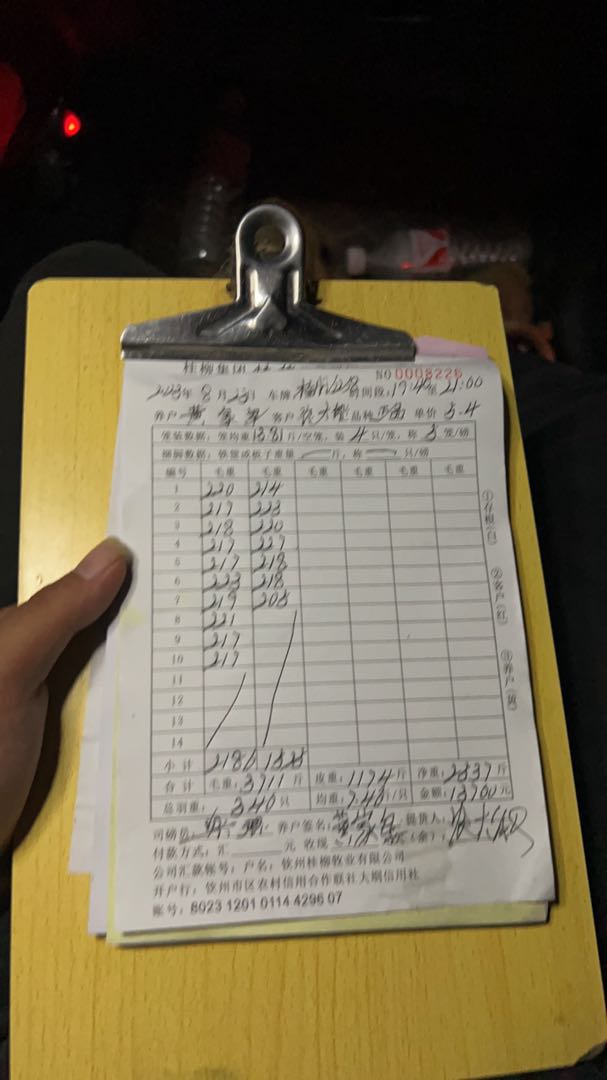 桂柳集团
NO 0008226
2023年 8月23日 车牌 时间段:17:40至21:00
养户 客户 品种 单价 5.4
笼装数据: 笼均重13.81斤/空笼, 装4只/笼, 称5笼/磅
捆脚数据: 铁笼或板子重量 斤, 称 只/磅
编号 毛重 毛重 毛重 毛重 毛重 毛重
1 220 214
2 217 223
3 218 220
4 217 227
5 217 218
6 223 218
7 219 205
8 221
9 217
10 217
11
12
13
14
小计 2186 1525
合计 毛重:3711斤 皮重:1174斤 净重:2537斤
总羽重: 340只 均重:7.46斤/只 金额:13700元
司磅员: 养户签名: 提货人:
付款方式: 汇 元 收现 (余):
公司汇款帐号: 户名: 钦州桂柳牧业有限公司
开户行: 钦州市区农村信用合作联社大垌信用社
账号: 8023 1201 0114 4296 07
①存根(白)
②客户(红)
③养户(黄)